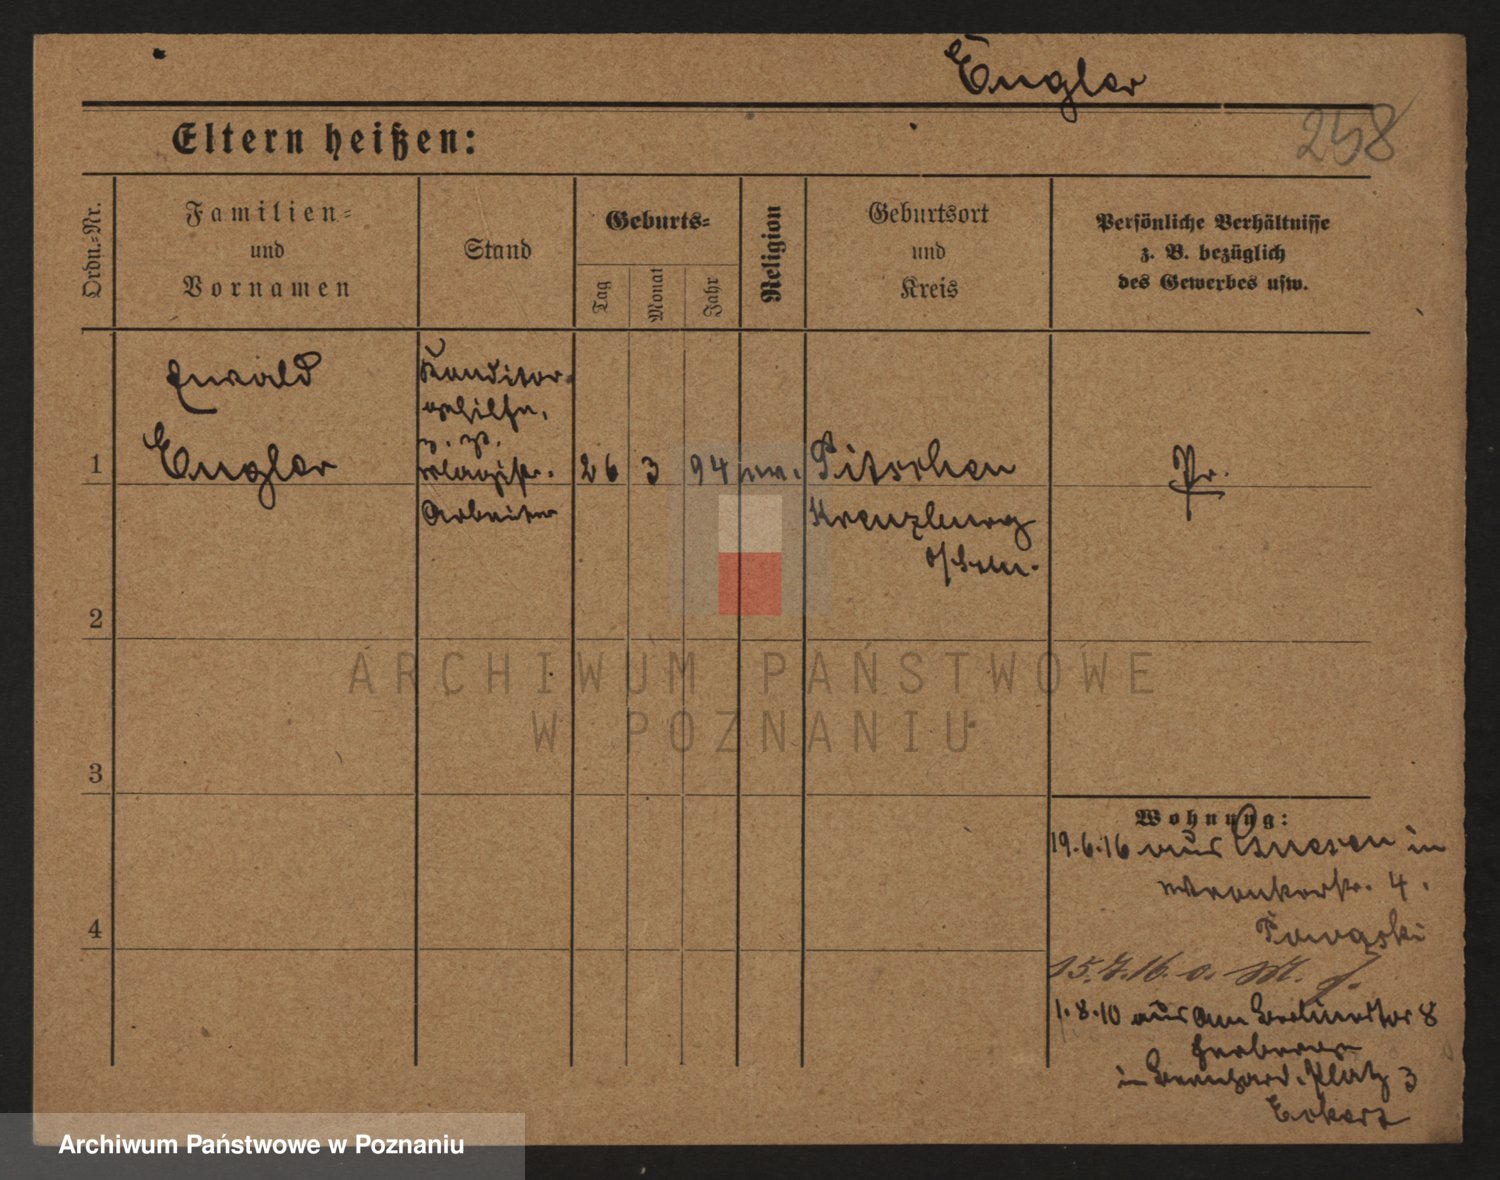 Engler
258
Eltern heißen:
Ordn.-Nr.
Familien-
und
Vornamen
Stand
Geburts-
Tag
Monat
Jahr
Religion
Geburtsort
und
Kreis
Persönliche Verhältnisse
z. B. bezüglich
des Gewerbes usw.
Ewald
Engler
Konditor-
gehilfe,
z. Zt.
Magistr.
Arbeiter
1
26
3
94
ev.
Pitschen
Kreuzburg
Pr.
2
3
4
Wohnung:
19.6.16 aus Gnesen in
Wronkerstr. 4.
15.7.16. o.
1.8.10 aus Am Berlinertor 8
in Bernhard. Platz 3
Eckert
ARCHIWUM PAŃSTWOWE
W POZNANIU
Archiwum Państwowe w Poznaniu